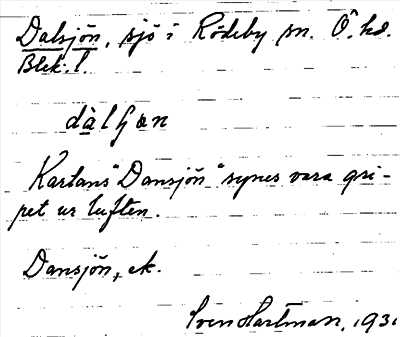 Dalsjön, sjö i Rödeby sn. Ö. hd.
Blek. l.
dàlʃɶn
Kartans "Dansjön" synes vara gri-
pet ur luften.
Dansjön, ek.
Sven Hartman, 1931